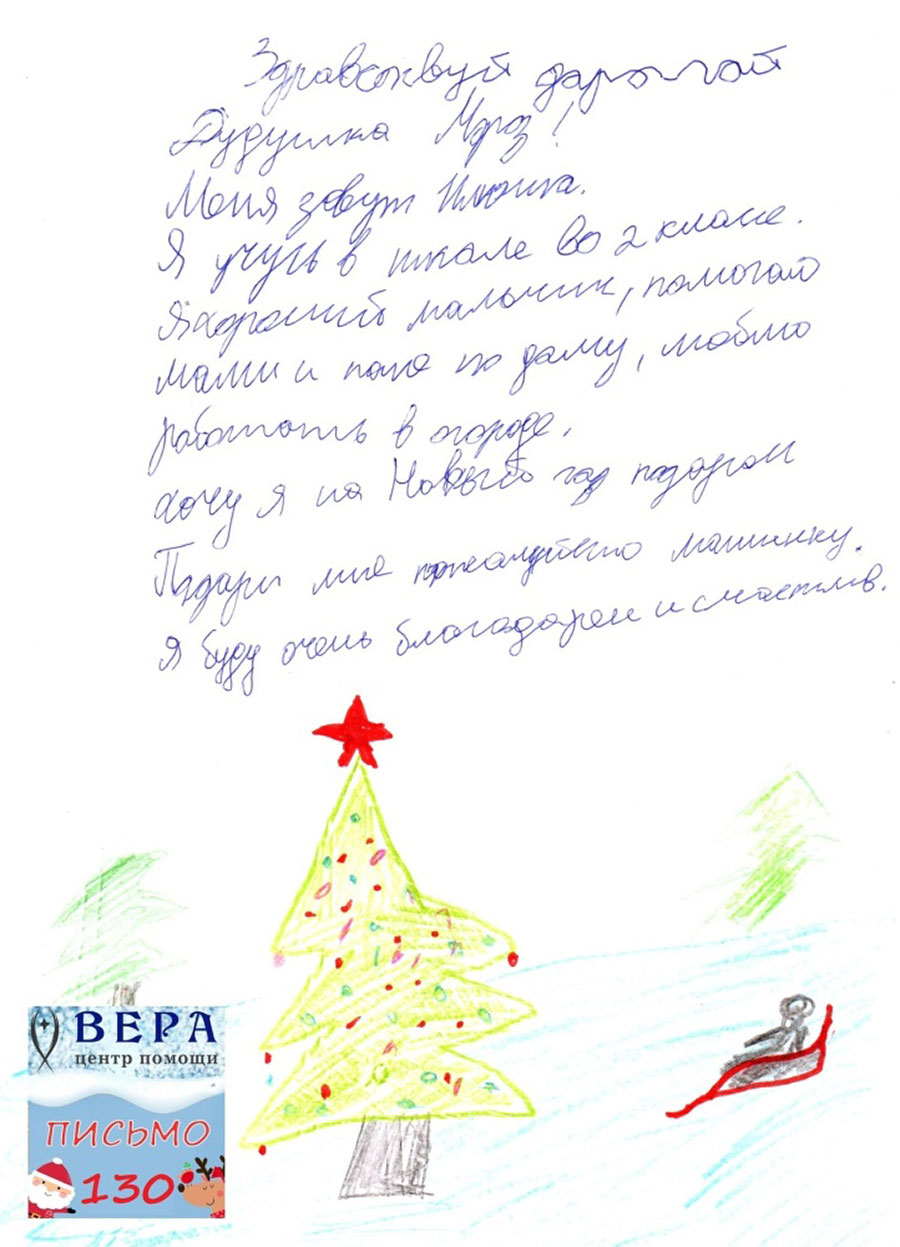 Здравсквуй дарогой
Дудушка Мароз!
Меня зовут Илюшка.
Я учусь в шкале во 2 класе.
Я хороший мальчик, помогаю
мами и папе по даму, люблю
работать в огороде.
хочу я на Новый год подарок
Падари мне пожалуйсто машинку.
Я буду очень благодарен и счастлив.
ВЕРА
центр помощи
ПИСЬМО
130